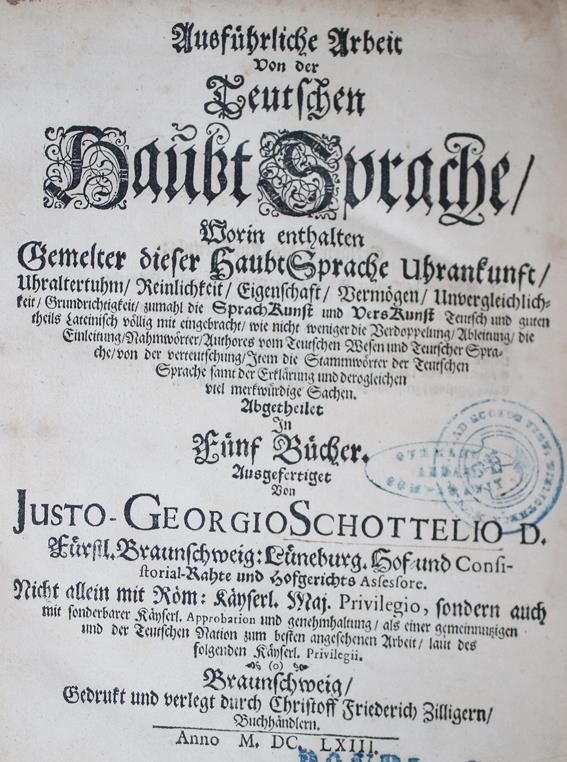 Ausführliche Arbeit
Von der
Teutschen
Haubt Sprache/
Worin enthalten
Gemelter dieser HaubtSprache Uhrankunft/
Uhraltertuhm/ Reinlichkeit/ Eigenschaft/ Vermögen/ Unvergleichlich-
keit/ Grundrichtigkeit/ zumahl die SprachKunst und VersKunst Teutsch und guten
theils Lateinisch völlig mit eingebracht/ wie nicht weniger die Verdoppelung/ Ableitung/ die
Einleitung/ Nahmwörter/ Authores vom Teutschen Wesen und Teutscher Spra-
che/ von der verteutschung/ Item die Stammwörter der Teutschen
Sprache samt der Erklärung und derogleichen
viel merkwürdige Sachen.
Abgetheilet
In
Fünf Bücher.
Ausgefertiget
Von
JUSTO-GEORGIO SCHOTTELIO D.
Fürstl. Braunschweig: Lüneburg. Hof- und Consi-
storial-Rahte und Hofgerichts Assessore.
Nicht allein mit Röm: Käyserl. Maj. Privilegio, sondern auch
mit sonderbarer Käyserl. Approbation und genehmhaltung/ als einer gemeinnutzigen
und der Teutschen Nation zum besten angesehenen Arbeit/ laut des
folgenden Käyserl. Privilegii.
(o)
Braunschweig/
Gedrukt und verlegt durch Christoff Friederich Zilligern/
Buchhändlern.
Anno M. DC. LXIII.